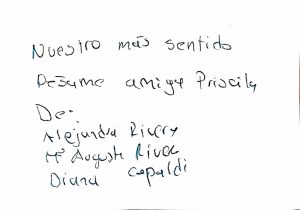 Nuestro más sentido
Pesame amiga Priscila
De:
Alejandra Rivera
Mª Auguste Rivera
Diana Capaldi